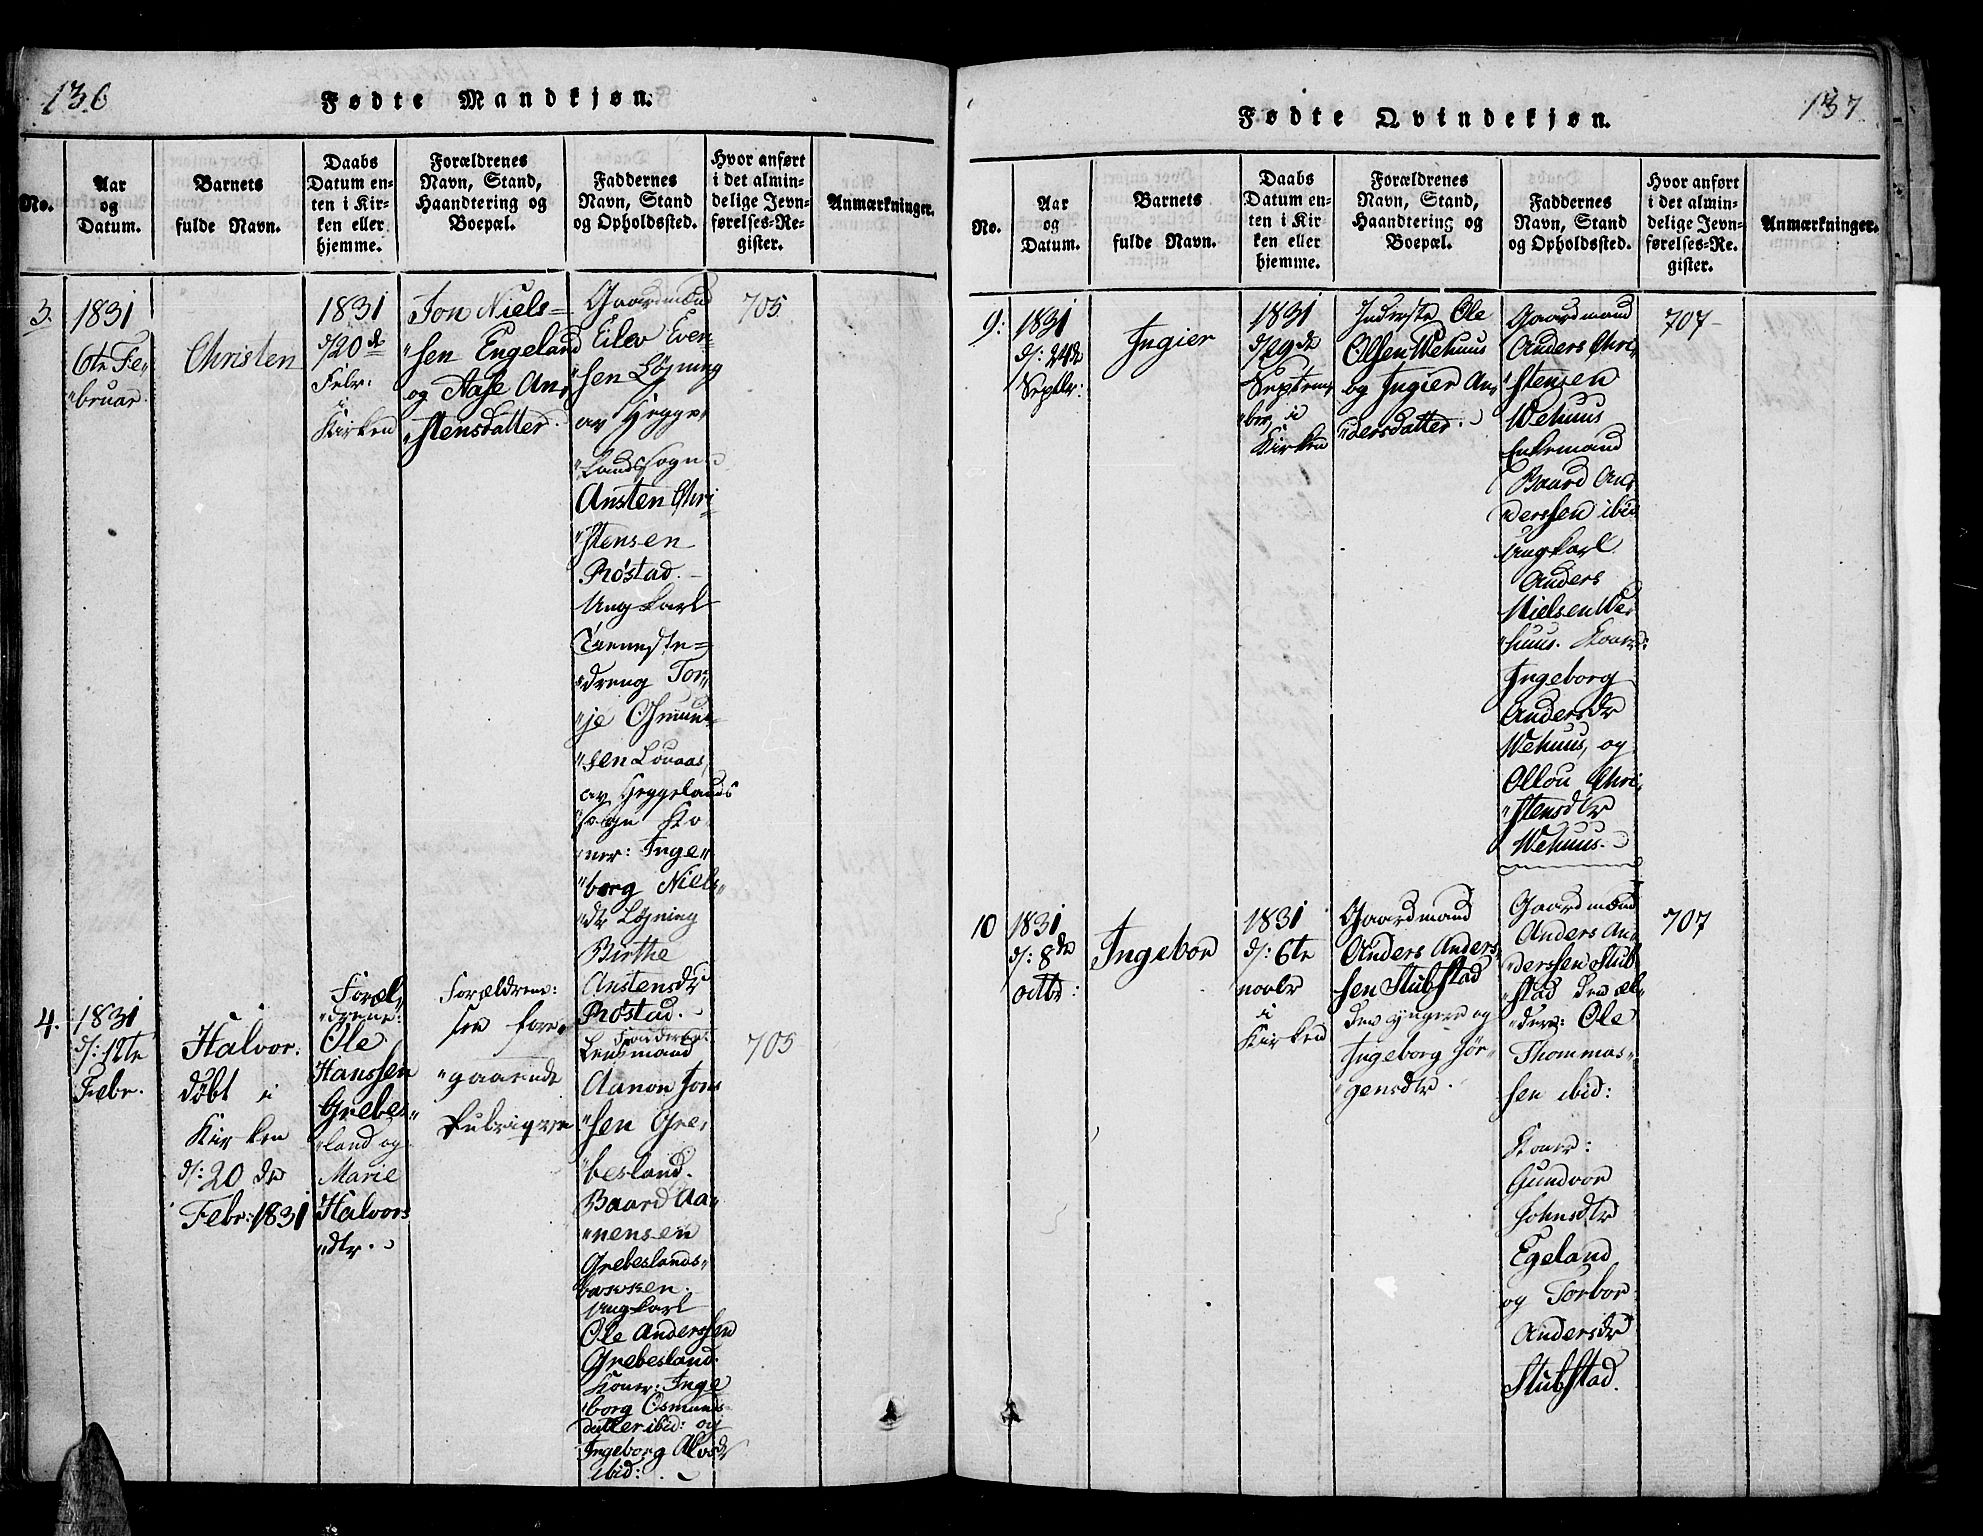 136
Fødte Mandkjøn.
No.
Aar
og
Datum.
Barnets
fulde Navn.
Daabs
Datum en-
ten i Kir-
ken eller
hjemme.
Forældrenes
Navn, Stand,
Haandtering og
Boepæl.
Faddernes
Navn, Stand
og Opholdssted.
Hvor anført
i det almin-
delige Jevn-
førelses-Re-
gister.
Anmærkninger.
3.
1831
6te Fe-
"bruar.
Christen
1831
d/20de
Febr:
i
Kirken
Jon Niels-
"sen Engeland
og Aase An-
"stensdatter.
Gaardmænd
Eilev Even-
"sen Løgning
av Hegge-
"landssogn
Ansten Chri-
"stensen
Røstad.
Ungkarl
Tieneste-
"dreng Tor-
"je Osmun-
"sen Løvaas,
av Heggelands
sogn Ko-
"ner: Inge-
"borg Niels-
"dr Løgning
Birthe
Anstensdr
Røstad.
705
4.
1831
d/: 12te
Febr.
Halvor.
døbt i
Kirken
d/: 20de
Febr: 1831
Foræl-
"drene:
Ole
Hanssen
Grebes-
"land og
Marie
Halvors
"dtr.
Forældrene:
see fore-
"gaaende
Rubriqven
Fadderne:
Lensmand
Aanon Jons
"sen Gre-
"besland.
Baard Aa-
"nensen
Grebeslands-
bakken.
Ungkarl
Ole Anderssen
Grebesland.
Koner: Inge
"borg Osmunds-
datter ibid: og
Ingeborg Alvsdr
ibid:
705
137
Fødte Qvindekjøn.
No.
Aar
og
Datum.
Barnets
fulde Navn.
Daabs
Datum en-
ten i Kir-
ken eller
hjemme.
Forældrenes
Navn, Stand,
Haandtering og
Boepæl.
Faddernes
Navn, Stand
og Opholdssted.
Hvor anført
i det almin-
delige Jevn-
førelses-Re-
gister.
Anmærkninger.
9:
1831
d/: 24de
Septbr:
Ingier
1831
d/29de
Septem-
"ber i
Kirken
Inderste Ole
Olsen Wehuus
og Ingier An-
"dersdatter.
Gaardmand
Anders Chri-
"stensen
Wehuus
Enkemand
Baard An-
"derssen ibid
Ungkarl
Anders
Nielsen We-
"huus. Koner:
Ingeborg
Andersdr
Wehuus, og
Ollou Chri-
"stensdtr
Wehuus.
707
10
1831
d/: 8de
Octbr:
Ingebor
1831
d/: 6te
novbr
i
Kirken
Gaardmand
Anders Anders
sen Stubstad
den yngere og
Ingeborg Jör-
"gensdtr.
Gaardmænd
Anders An-
"derssen Stub
"stad den æl-
"dere: Ole
Thommas-
sen ibid:
Koner:
Gundvor
Johnsdtr
Egeland
og Torbor
Andersdr
Stubstad.
707